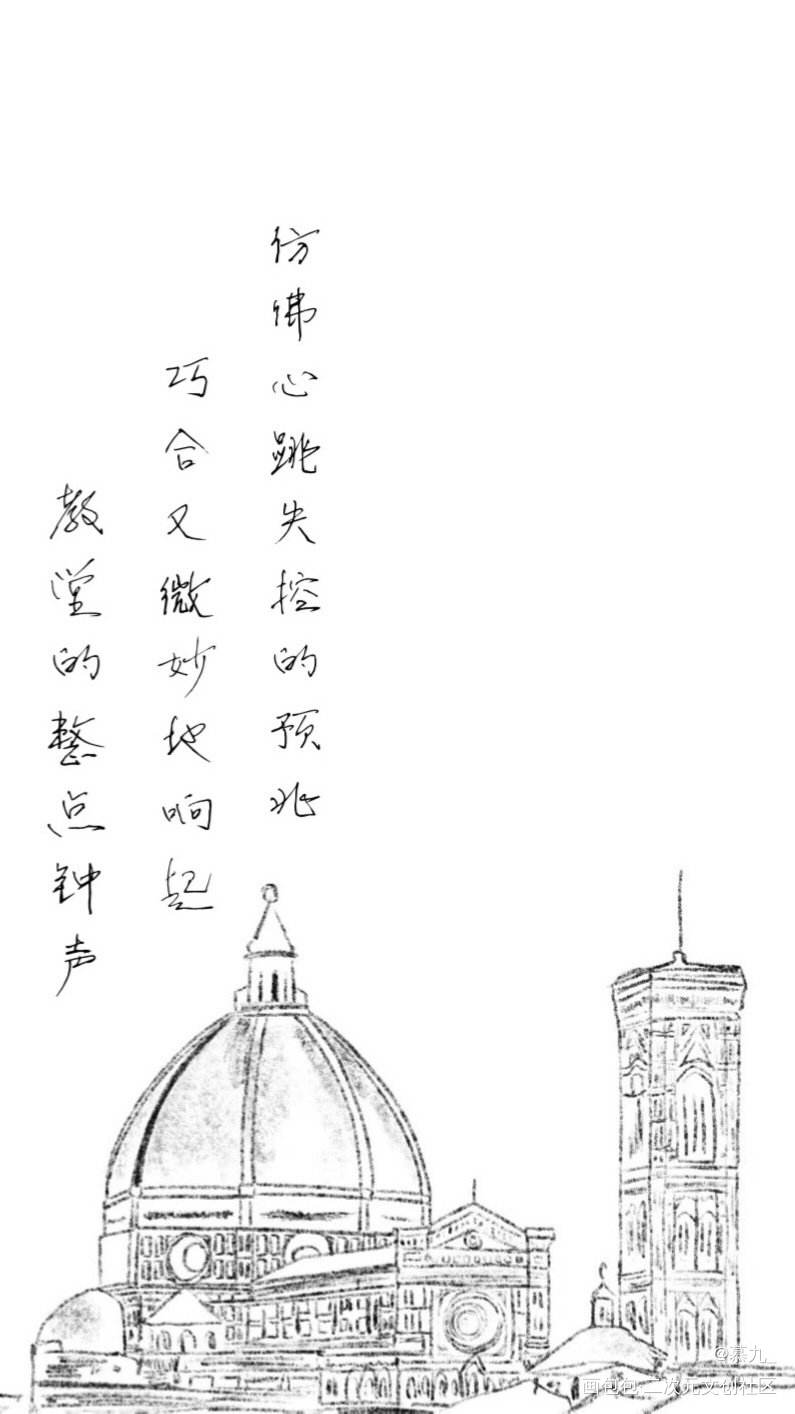 仿佛心跳失控的预兆
巧合又微妙地响起
教堂的整点钟声
@慕九
画包包·二次元文创社区